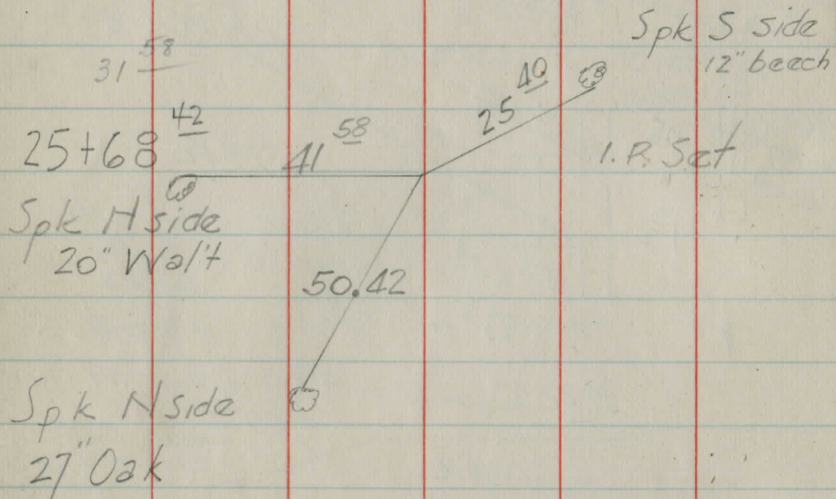 Spk S side
12" beech
31 58
25 40
25+68 42
41 58
I.P. Set
Spk N side
20" Wal't
50.42
Spk N side
27" Oak